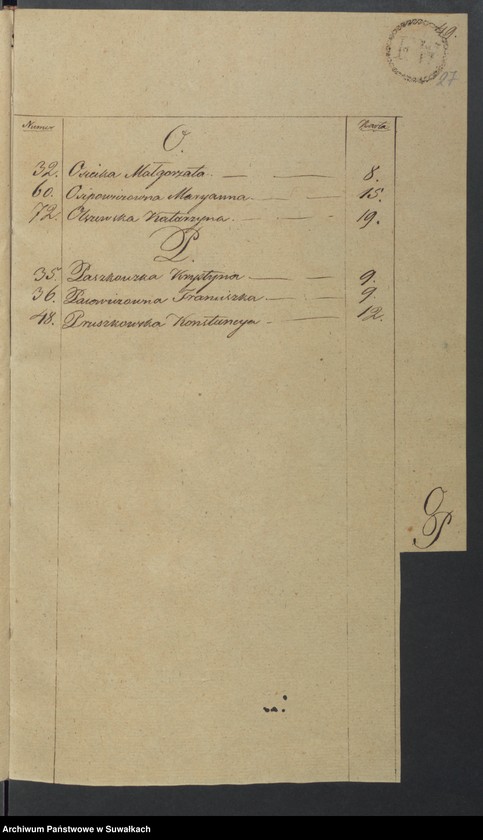 49.
27
Numer Karta
O.
32. Osicka Małgorzata 8.
60. Osipowiczowna Maryanna 15.
72. Olszewska Katarzyna 19.
P.
35. Paszkowska Krystyna 9.
36. Pacewiczowna Franciszka 9.
48. Pruszkowska Konstancya 12.
O
P
Archiwum Państwowe w Suwałkach